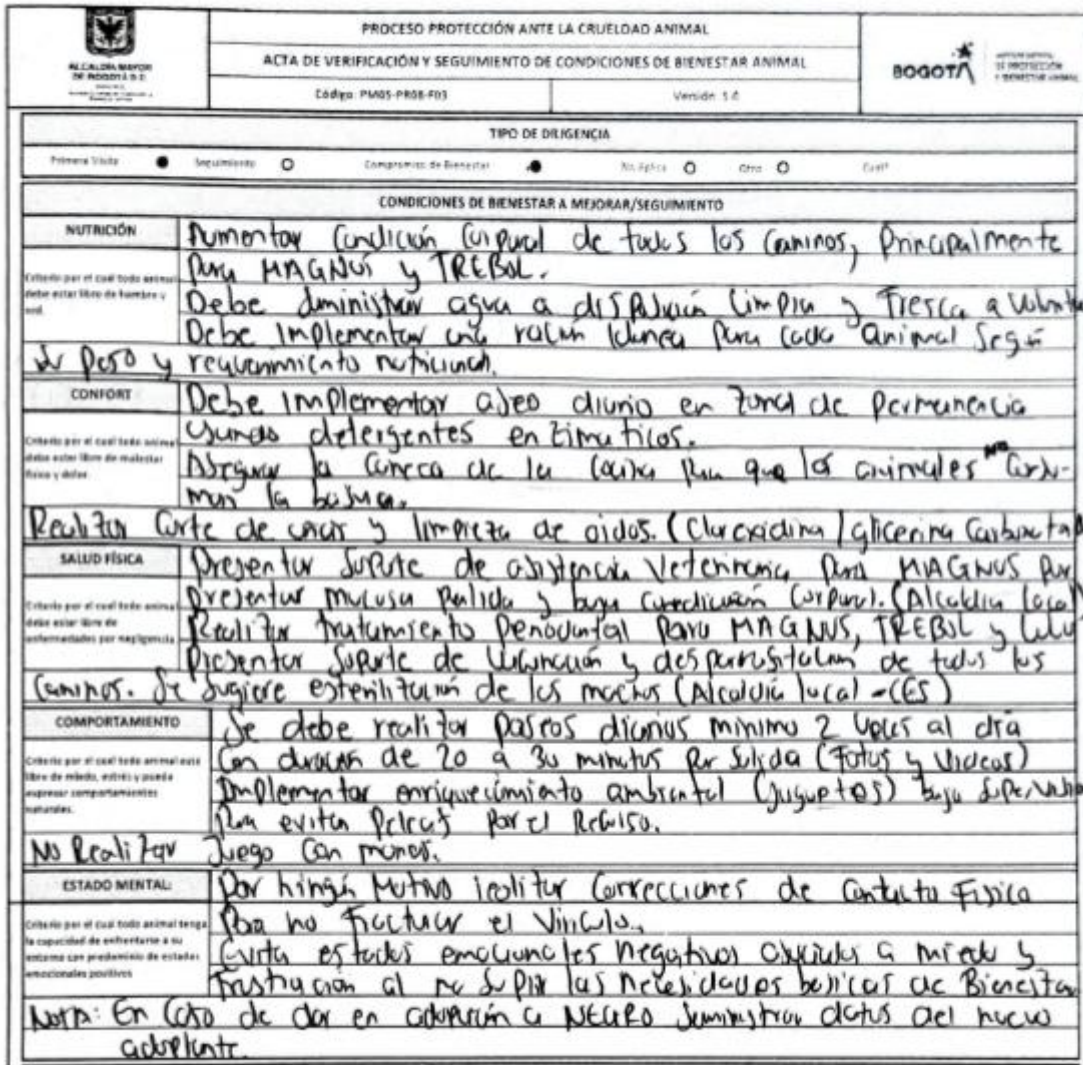 ALCALDÍA MAYOR
DE BOGOTÁ D.C.
PROCESO PROTECCIÓN ANTE LA CRUELDAD ANIMAL
ACTA DE VERIFICACIÓN Y SEGUIMIENTO DE CONDICIONES DE BIENESTAR ANIMAL
Código: PM05-PR08-F03
BOGOTÁ
DE PROTECCIÓN
Y BIENESTAR ANIMAL
TIPO DE DILIGENCIA
Primera Visita Seguimiento Compromiso de Bienestar No Aplica Otro Cuál?
CONDICIONES DE BIENESTAR A MEJORAR/SEGUIMIENTO
NUTRICIÓN
Criterio por el cual todo animal
debe estar libre de hambre y
sed.
Aumentar Condición Corporal de todos los Caninos, Principalmente
Para MAGNUS y TREBOL.
Debe Suministrar agua a disposición Limpia y Fresca a Volunta
Debe Implementar una ración Idonea Para cada animal Según
su peso y requerimiento nutricional.
CONFORT
Criterio por el cual todo animal
debe estar libre de malestar
físico y dolor.
Debe Implementar aseo diario en zona de Permanencia
Usando detergentes enzimaticos.
Asegurar la Caneca de la Cocina Para que los animales no Consu-
man la basura.
Realizar Corte de uñas y limpieza de oidos. (Clorexidina / glicerina Carbonatada
SALUD FÍSICA
Criterio por el cual todo animal
debe estar libre de
enfermedades por negligencia
Presentar Soporte de asistencia Veterinaria Para MAGNUS Por
Presentar mucosa Palida y baja Condición Corporal. (Alcaldia local)
Realizar tratamiento Periodontal Para MAGNUS, TREBOL y Lulu
Presentar Soporte de Vacunación y desparasitación de todos los
Caninos. Se Sugiere esterilización de los machos (Alcaldía local - CES)
COMPORTAMIENTO
Criterio por el cual todo animal este
libre de miedo, estrés y pueda
expresar comportamientos
naturales.
Se debe realizar Paseos diarios minimo 2 Veces al día
Con duración de 20 a 30 minutos Por Salida (Fotos y Videos)
Implementar enriquecimiento ambiental (Juguetes) bajo Supervisión
Para evitar Peleas Por el Recurso.
No Realizar Juego Con manos.
ESTADO MENTAL:
Criterio por el cual todo animal tenga
la capacidad de enfrentarse a su
entorno con predominio de estados
emocionales positivos
Por ningún Motivo realizar Correcciones de Contacto Fisico
Para no Fracturar el Vinculo.
Evitar estados emocionales Negativos asociados a miedo y
Frustración al no Suplir las Necesidades basicas de Bienestar
Nota: En Caso de dar en adopción a NEGRO Suministrar datos del nuevo
adoptante.